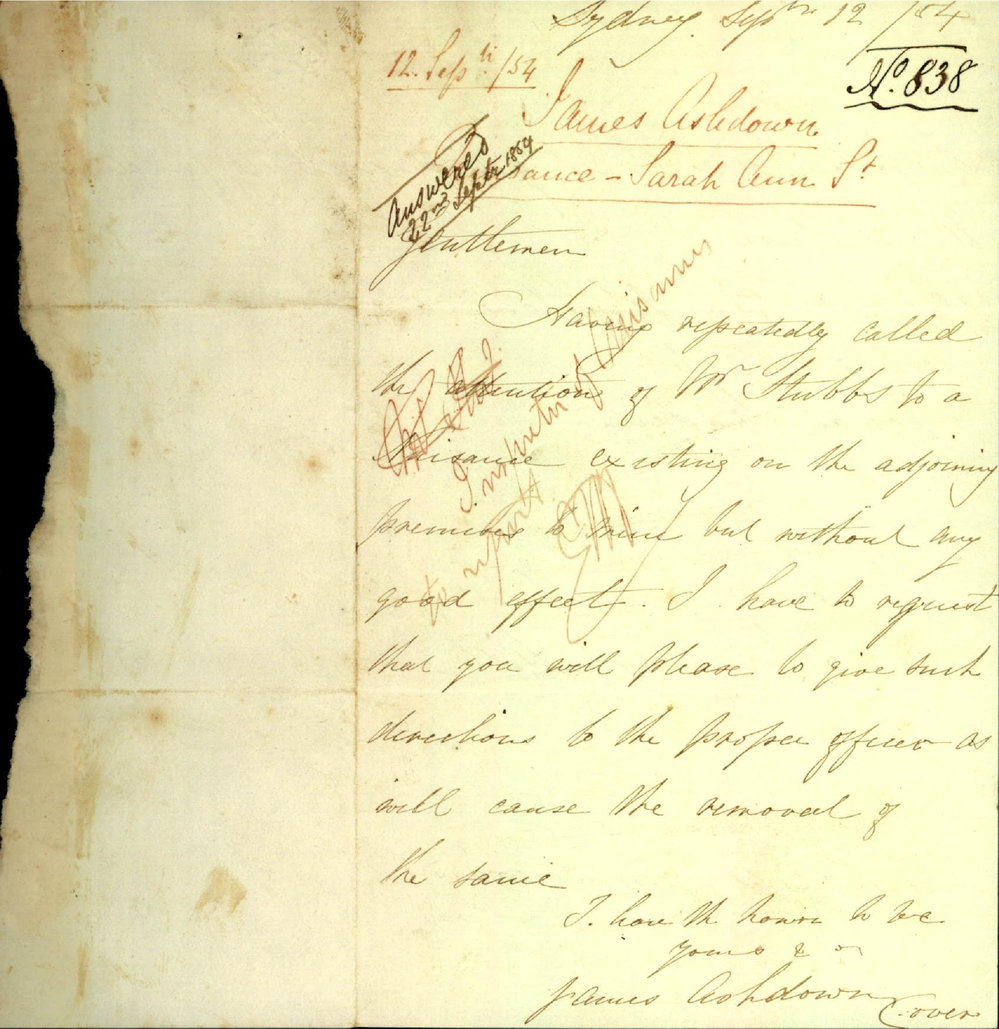 Sydney Septr 12 /54
12. Septr /54
No. 838
James Ashdown
sance - Sarah Ann St
Answered
22nd Septr 1854
Gentlemen
Having repeatedly called
the attention of Mr Stubbs to a
Nuisance existing on the adjoining
premises to mine but without any
good effect. I have to request
that you will please to give such
directions to the proper officer as
will cause the removal of
the same
I have the honor to be
yours &
James Ashdown
over
Inspector of Nuisances
to report